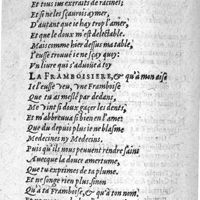 Et tous ius extraits de racines:
Et si ne les sçaurois aymer,
D'autant que ie hay trop l'amer,
Et que le doux m'est delectable.
Mais comme hier dessus ma table,
I'eusse trouué ie ne sçay quoy
Vn liure qui s'adresse à toy
LA FRAMBOISIERE, & qu'à mon aise
I'eusse veu, vne Framboise
Que tu as meslé par dedans,
Me vint si doux gacer les dents,
Et m'abbreuua si bien en l'amer
Que du depuis plus ie ne blasme
Medecines ny Medecins.
Puis qu'ils nous peuuent rendre sains
Auecque la douce amertume,
Que tu exprimes de ta plume.
Et ne songe rien plus, sinon
Qu'à ta Framboise, & qu'à ton nom.